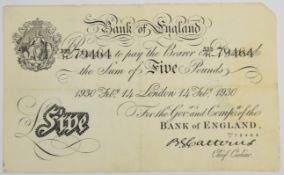 Bank of England
79464 to pay the Bearer 79464
the Sum of Five Pounds
1930 Feb. 14 London 14 Feb. 1930
For the Gov. and Comp.a of the
Five BANK OF ENGLAND.
Chief Cashier